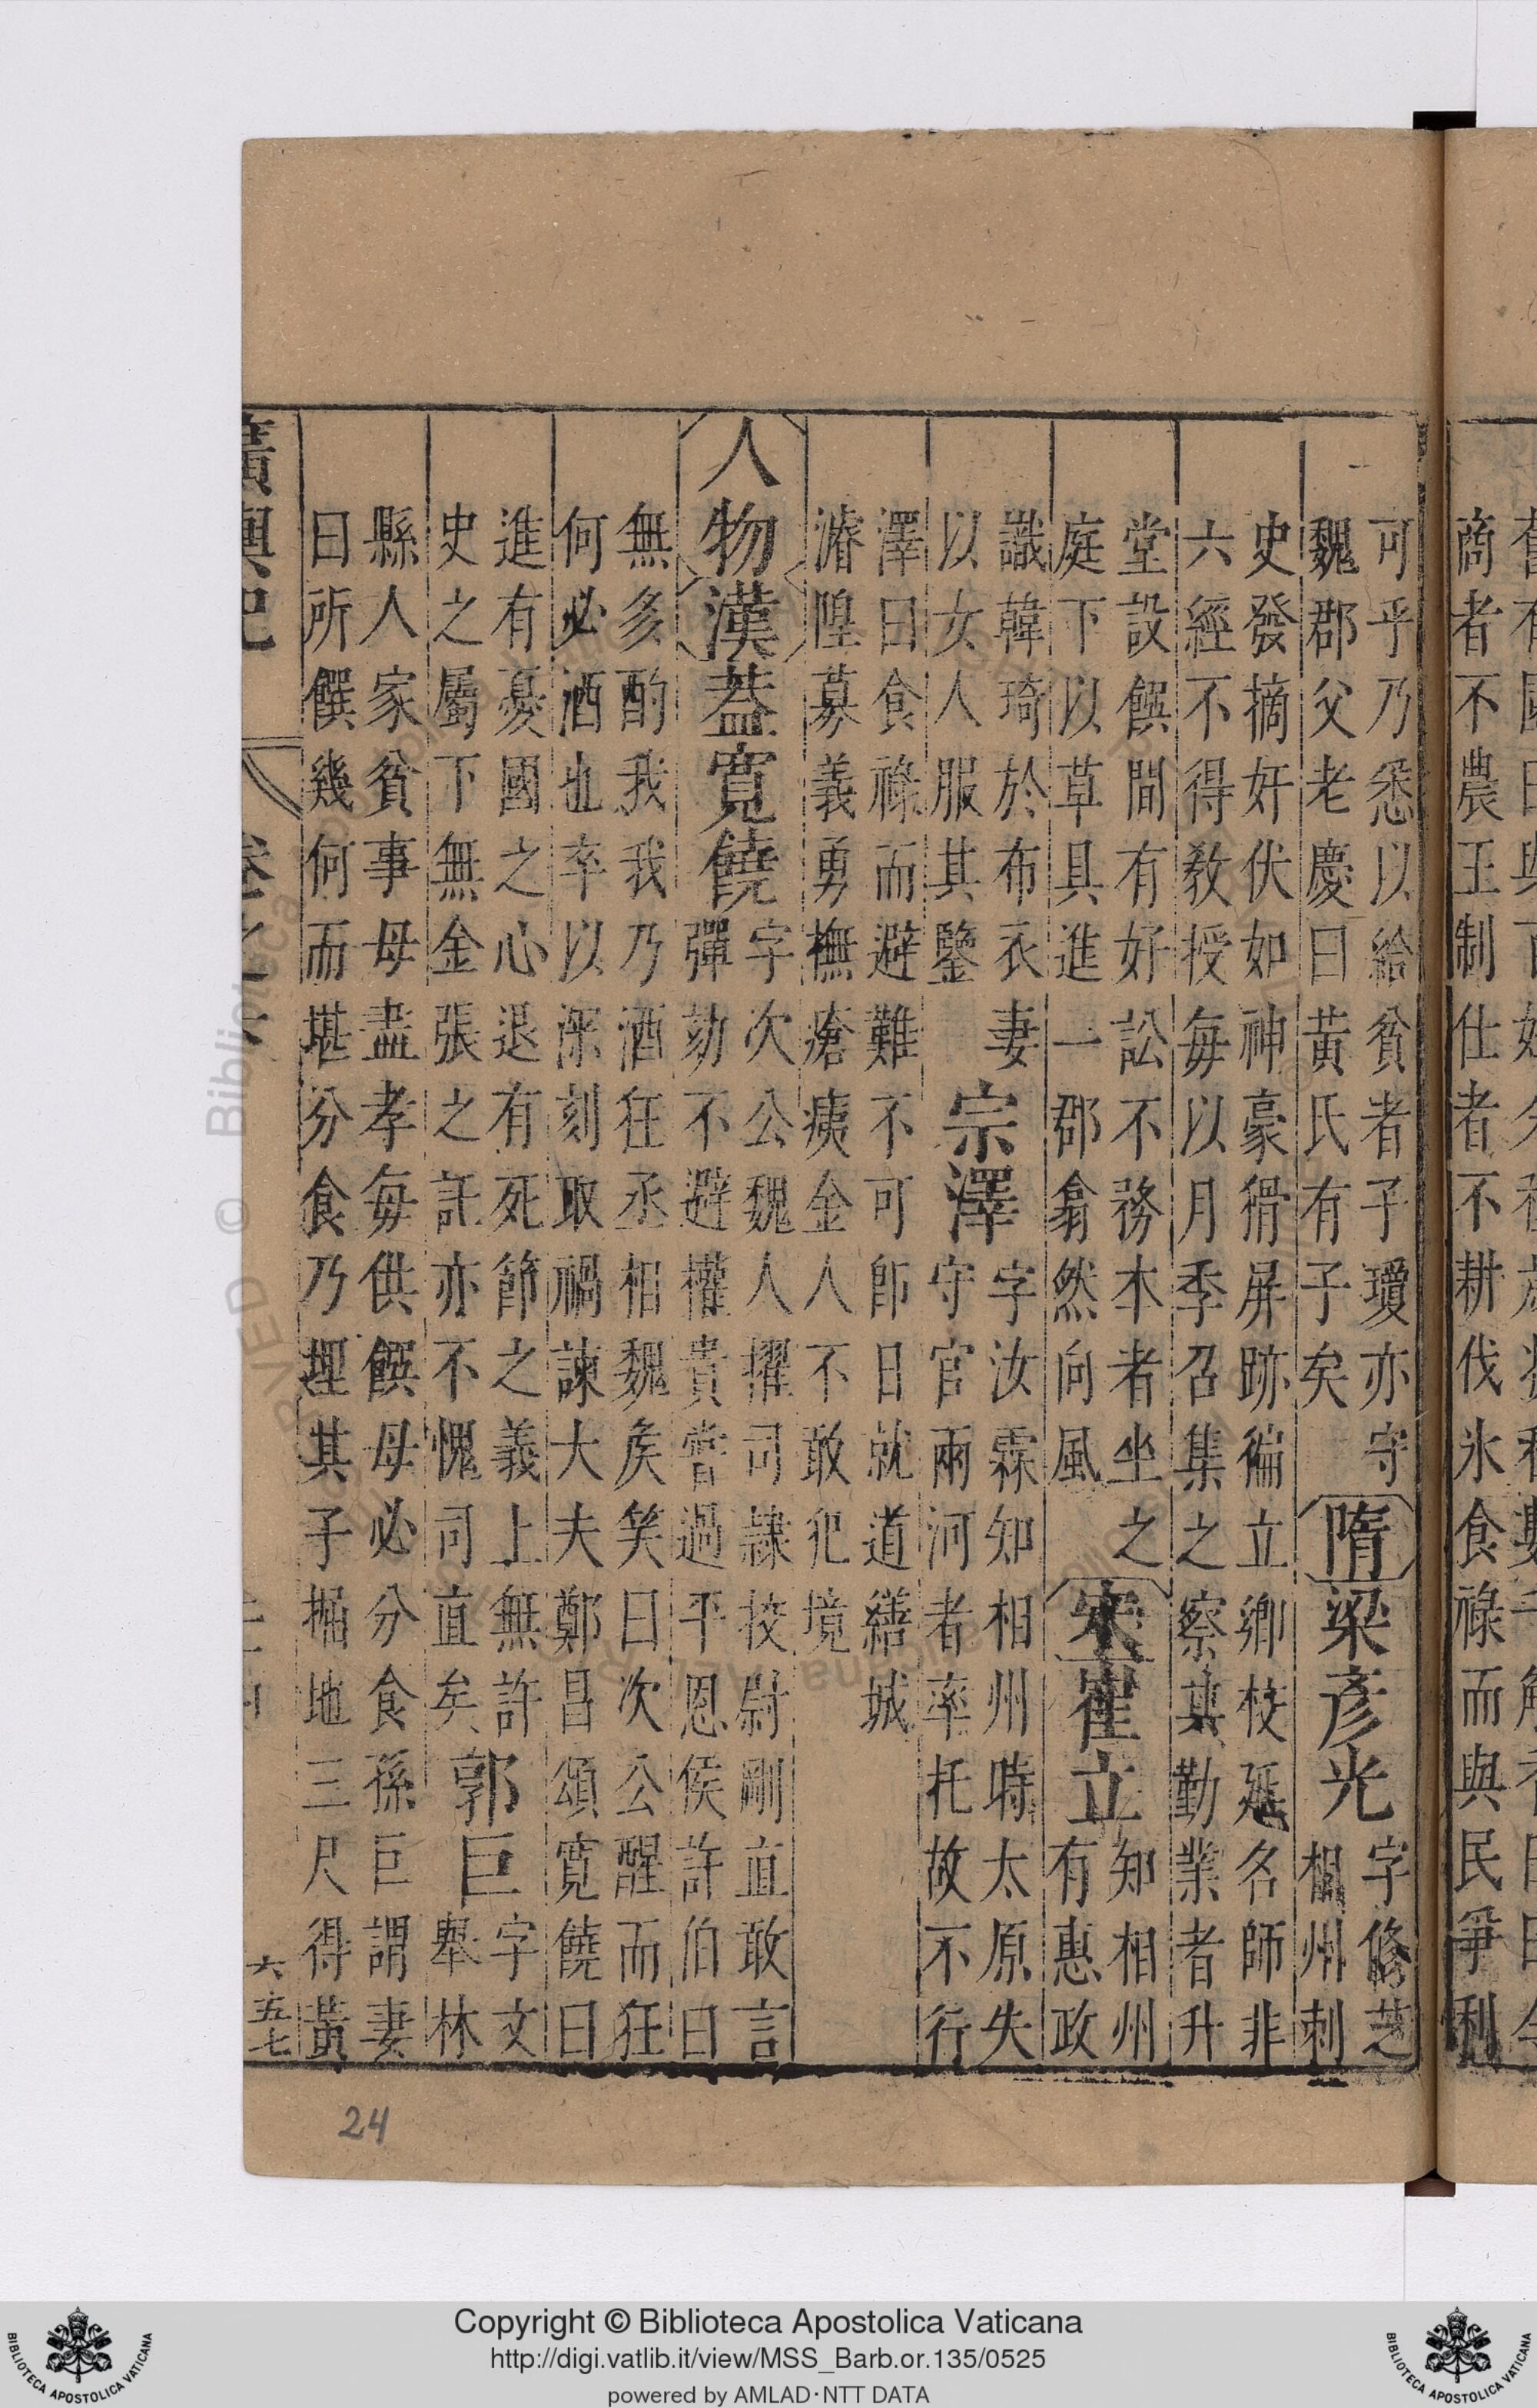 可乎乃悉以給貧者子瓊亦守
魏郡父老慶曰黃氏有子矣
隋梁彥光
字修芝
相州刺
史發摘奸伏如神豪猾屏跡徧立鄉校延名師非
六經不得教授每以月季召集之察其勤業者升
堂設饌間有好訟不務本者坐之
庭下以草具進一郡翕然向風
宋崔立
知相州
有惠政
識韓琦於布衣妻
以女人服其鑒
宗澤
字汝霖知相州時太原失
守官兩河者率托故不行
澤曰食祿而避難不可即日就道繕城
濬隍募義勇撫瘡痍金人不敢犯境
人物漢蓋寬饒
字次公魏人擢司隸校尉剛直敢言
彈劾不避權貴嘗過平恩侯許伯曰
無多酌我我乃酒狂丞相魏矦笑曰次公醒而狂
何必酒也卒以深刻取禍諫大夫鄭昌頌寬饒曰
進有憂國之心退有死節之義上無許
史之屬下無金張之託亦不愧司直矣
郭巨
字文
舉林
縣人家貧事母盡孝每供饌母必分食孫巨謂妻
曰所饌幾何而堪分食乃埋其子掘地三尺得黃
廣輿記
卷之六
六五七
24
商者不農王制仕者不耕伐氷食祿而與民爭利
© Biblioteca Apostolica Vaticana
Copyright © Biblioteca Apostolica Vaticana
http://digi.vatlib.it/view/MSS_Barb.or.135/0525
powered by AMLAD·NTT DATA
BIBLIOTECA APOSTOLICA VATICANA
BIBLIOTECA APOSTOLICA VATICANA